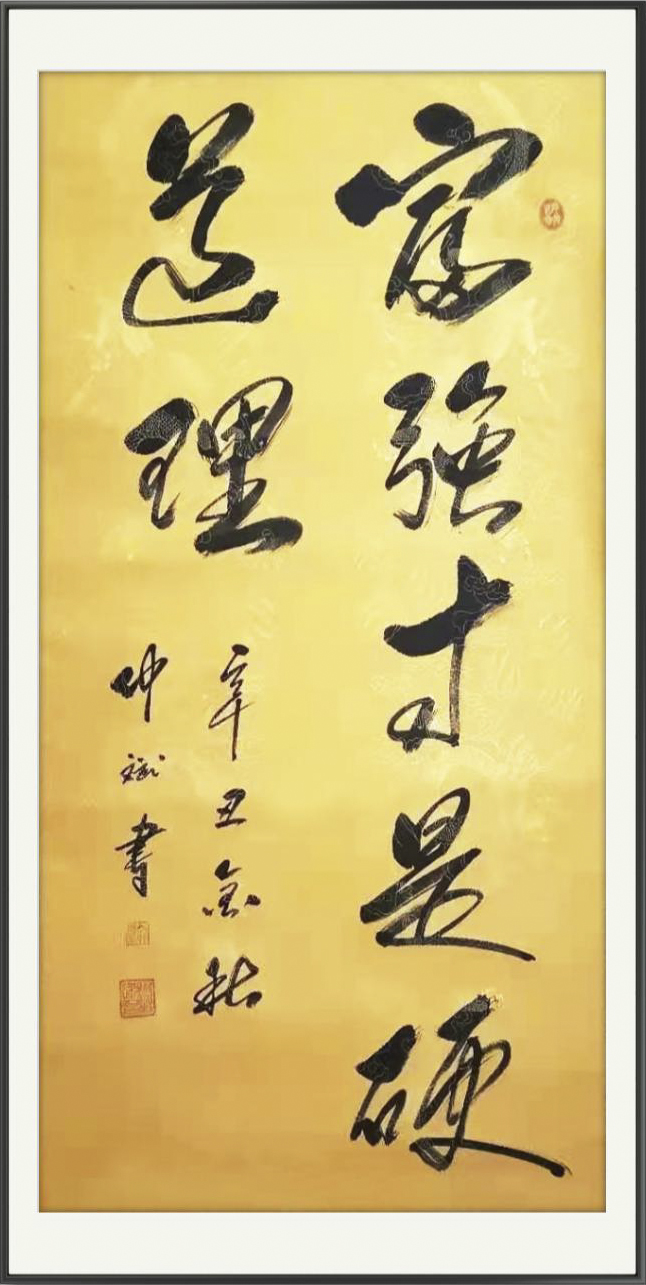 富強才是硬
道理
辛丑金秋
仲斌書